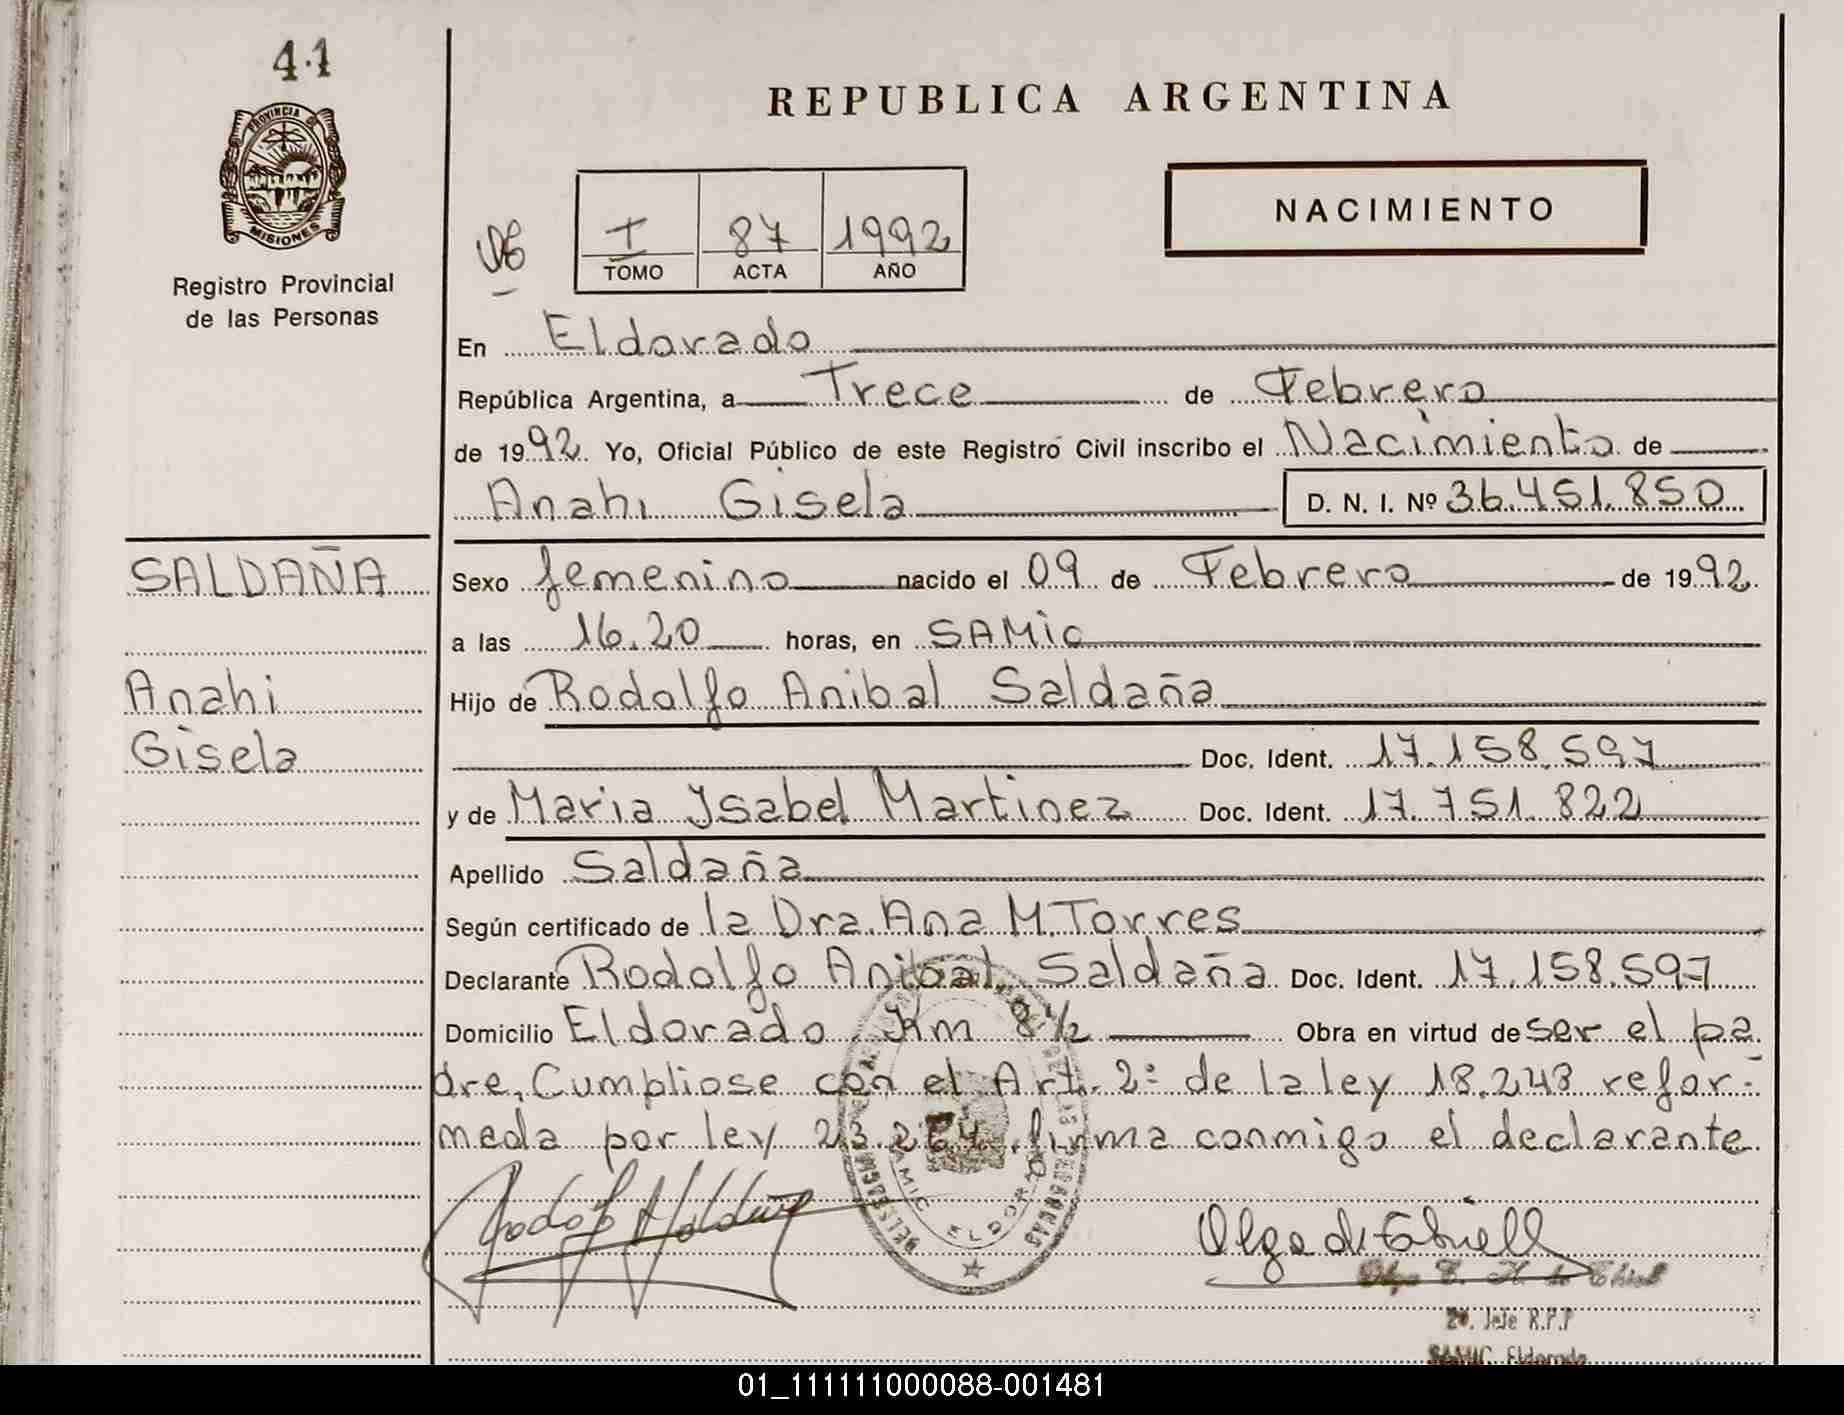 41
REPUBLICA ARGENTINA
PROVINCIA D
MISIONES
Registro Provincial
de las Personas
I 87 1992
TOMO ACTA AÑO
NACIMIENTO
En Eldorado
República Argentina, a Trece de Febrero
de 1992. Yo, Oficial Público de este Registro Civil inscribo el Nacimiento de
Anahi Gisela D. N. I. Nº 36.451.850
SALDAÑA
Sexo femenino nacido el 09 de Febrero de 1992.
a las 16.20 horas, en SAMIC
Anahi
Hijo de Rodolfo Anibal Saldaña
Gisela
Doc. Ident. 17.158.597
y de Maria Ysabel Martinez Doc. Ident. 17.751.822
Apellido Saldaña
Según certificado de la Dra. Ana M. Torres
Declarante Rodolfo Anibal Saldaña Doc. Ident. 17.158.597
Domicilio Eldorado Km 8½ Obra en virtud de ser el pa
dre, Cumpliose con el Art. 2º de la ley 18.248 refor-
mada por ley 23.264, firma conmigo el declarante.
DE LAS PERSONAS
SAMIC ELDORADO
2º. Jefe R.P.P
SAMIC Eldorado
01_111111000088-001481